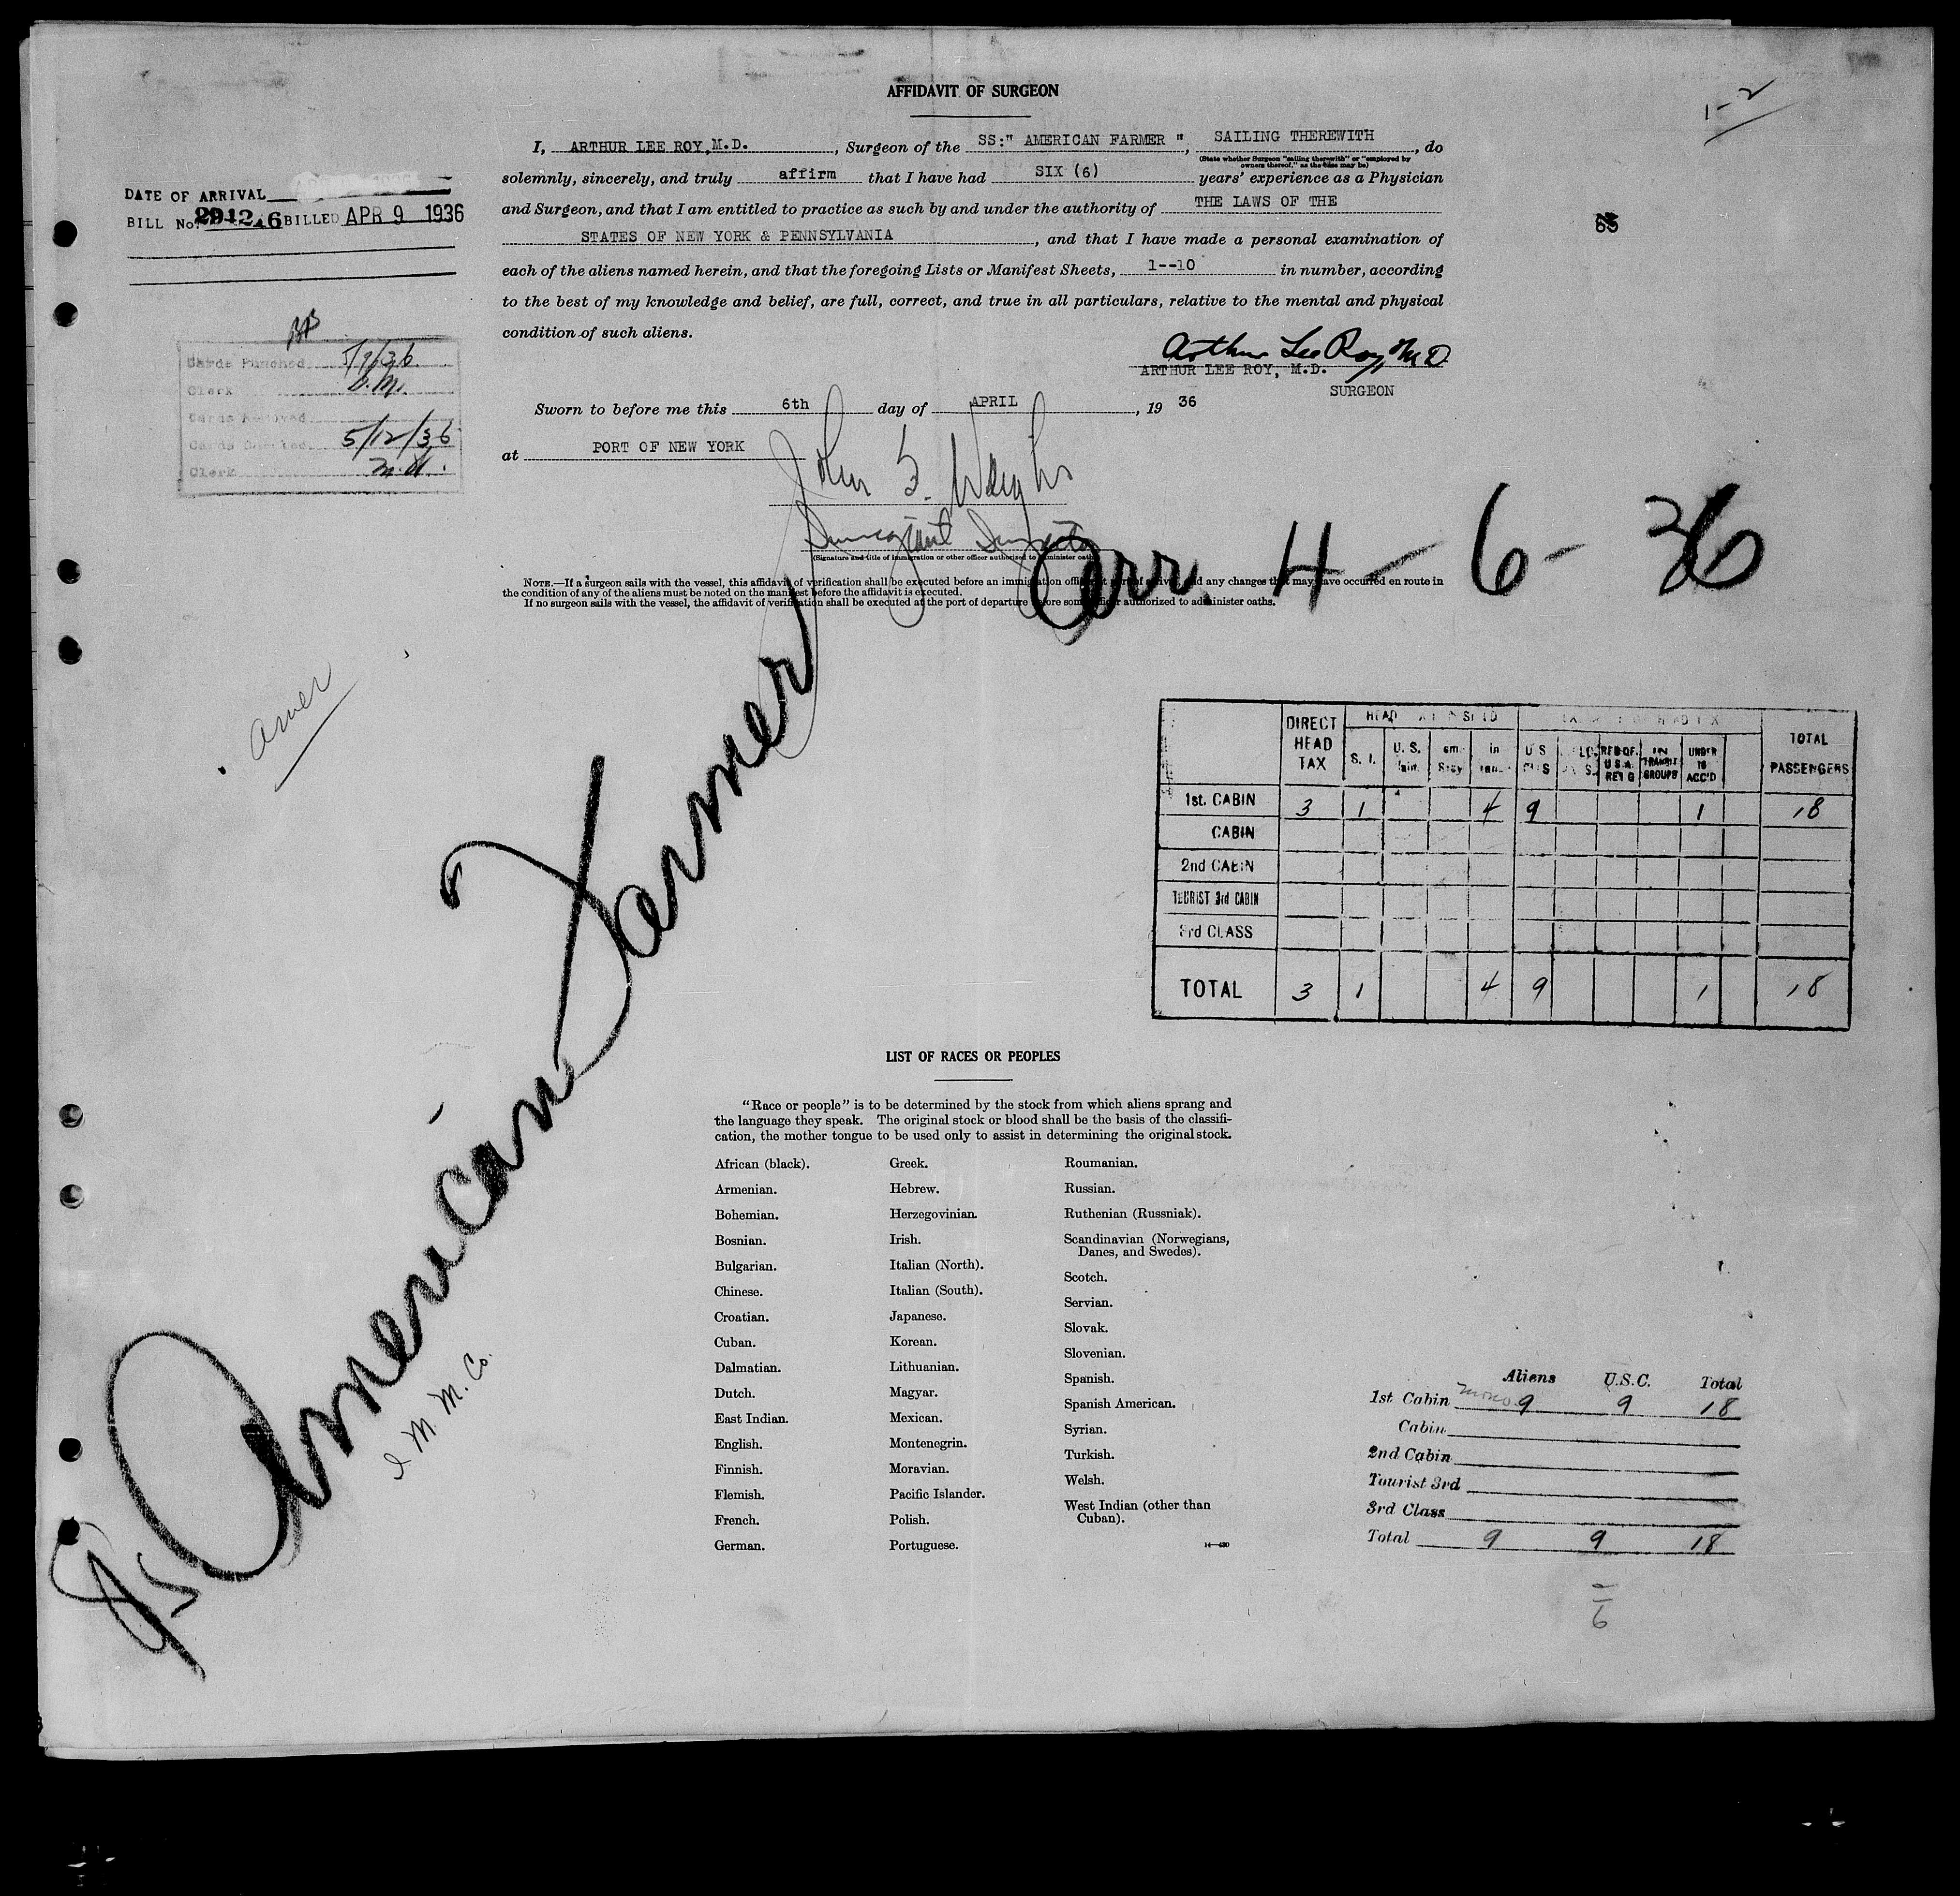 AFFIDAVIT OF SURGEON
1-2
I, ARTHUR LEE ROY, M.D. , Surgeon of the SS:" AMERICAN FARMER ", SAILING THEREWITH , do
(State whether Surgeon "sailing therewith" or "employed by
owners thereof," as the case may be)
solemnly, sincerely, and truly affirm that I have had SIX (6) years' experience as a Physician
and Surgeon, and that I am entitled to practice as such by and under the authority of THE LAWS OF THE
STATES OF NEW YORK & PENNSYLVANIA , and that I have made a personal examination of
each of the aliens named herein, and that the foregoing Lists or Manifest Sheets, 1--10 in number, according
to the best of my knowledge and belief, are full, correct, and true in all particulars, relative to the mental and physical
condition of such aliens.
DATE OF ARRIVAL
BILL No. BILLED APR 9 1936
Cards Punched 5/7/36
Clerk D.M.
5/12/36
Clerk M.H.
Arthur Lee Roy, M.D.
ARTHUR LEE ROY, M.D.
SURGEON
Sworn to before me this 6th day of APRIL , 19 36
at PORT OF NEW YORK
(Signature and title of immigration or other officer authorized to administer oath)
Arr. 4-6-36
NOTE.—If a surgeon sails with the vessel, this affidavit of verification shall be executed before an immigration officer at port of arrival, and any changes that may have occurred en route in
the condition of any of the aliens must be noted on the manifest before the affidavit is executed.
If no surgeon sails with the vessel, the affidavit of verification shall be executed at the port of departure before some officer authorized to administer oaths.
Amer
SS American Farmer
I. M. M. Co.
DIRECT HEAD TAX S. I. U. S. in U S IN TRANSIT GROUPS UNDER 16 ACC'D TOTAL PASSENGERS
1st. CABIN 3 1 4 9 1 18
CABIN
2nd CABIN
TOURIST 3rd CABIN
3rd CLASS
TOTAL 3 1 4 9 1 18
LIST OF RACES OR PEOPLES
"Race or people" is to be determined by the stock from which aliens sprang and
the language they speak. The original stock or blood shall be the basis of the classifi-
cation, the mother tongue to be used only to assist in determining the original stock.
African (black).
Armenian.
Bohemian.
Bosnian.
Bulgarian.
Chinese.
Croatian.
Cuban.
Dalmatian.
Dutch.
East Indian.
English.
Finnish.
Flemish.
French.
German.
Greek.
Hebrew.
Herzegovinian.
Irish.
Italian (North).
Italian (South).
Japanese.
Korean.
Lithuanian.
Magyar.
Mexican.
Montenegrin.
Moravian.
Pacific Islander.
Polish.
Portuguese.
Roumanian.
Russian.
Ruthenian (Russniak).
Scandinavian (Norwegians,
Danes, and Swedes).
Scotch.
Servian.
Slovak.
Slovenian.
Spanish.
Spanish American.
Syrian.
Turkish.
Welsh.
West Indian (other than
Cuban).
Aliens U.S.C. Total
1st Cabin 9 9 18
Cabin
2nd Cabin
Tourist 3rd
3rd Class
Total 9 9 18